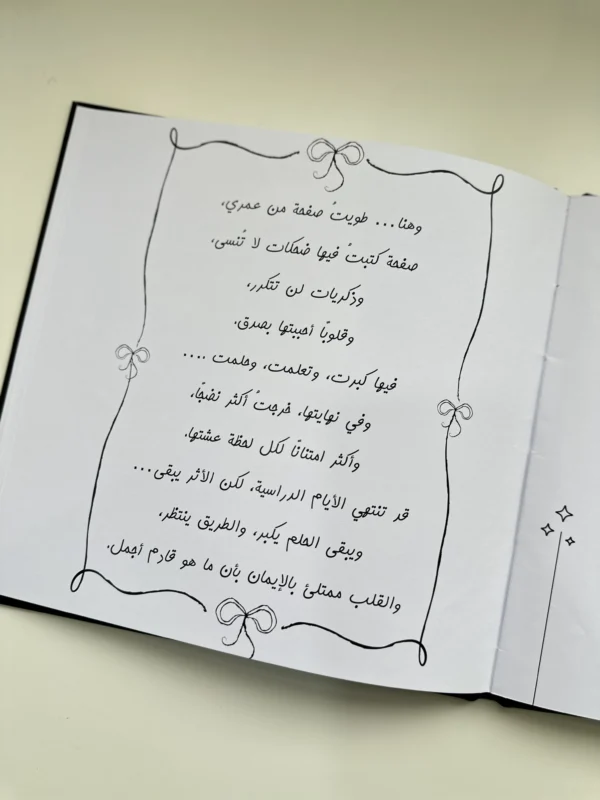 وهنا... طويتُ صفحة من عمري،
صفحة كتبتُ فيها ضحكات لا تُنسى،
وذكريات لن تتكرر،
وقلوبًا أحببتها بصدق.
فيها كبرت، وتعلمت، وحلمت ....
وفي نهايتها، خرجتُ أكثر نضجًا،
وأكثر امتنانًا لكل لحظة عشتها.
قد تنتهي الأيام الدراسية، لكن الأثر يبقى...
ويبقى الحلم يكبر، والطريق ينتظر،
والقلب ممتلئ بالإيمان بأن ما هو قادم أجمل.